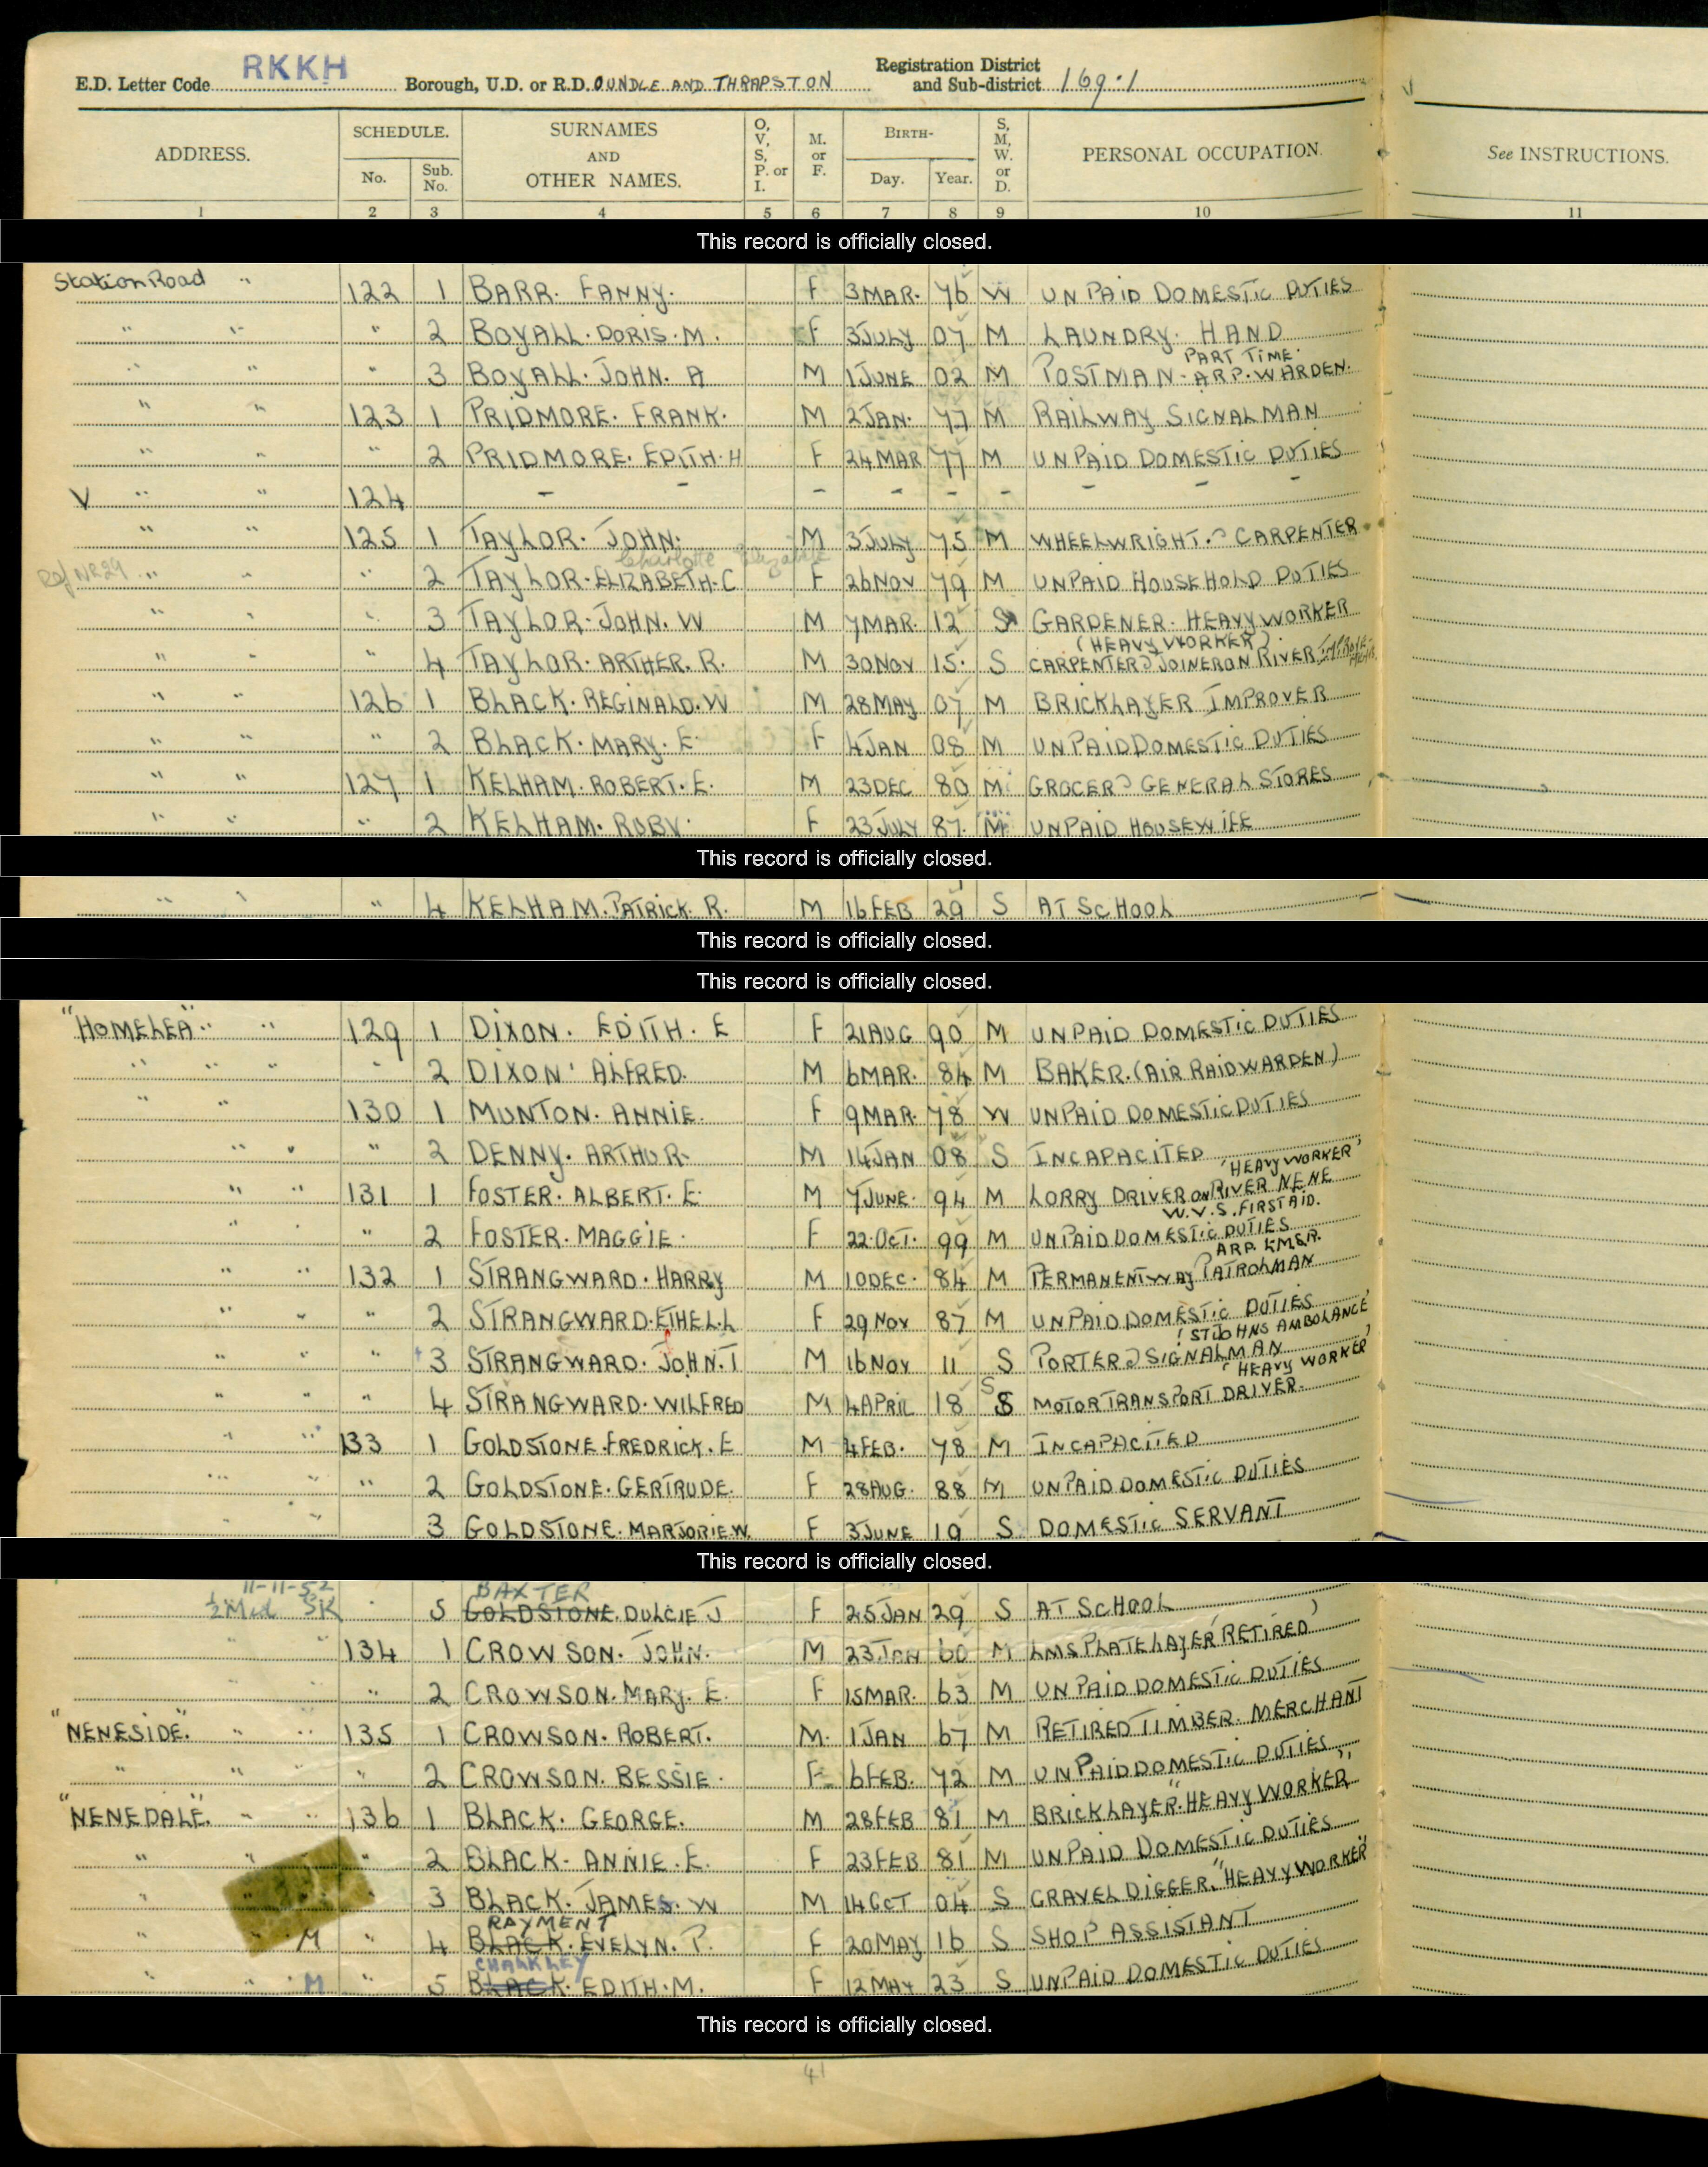 E.D. Letter Code RKKH Borough, U.D. or R.D. OUNDLE AND THRAPSTON Registration District and Sub-district 169.1
ADDRESS. SCHEDULE. No. Sub. No. SURNAMES AND OTHER NAMES. O, V, S, P. or I. M. or F. BIRTH- Day. Year. S, M, W. or D. PERSONAL OCCUPATION. See INSTRUCTIONS.
1 2 3 4 5 6 7 8 9 10 11
This record is officially closed.
Station Road " 122 1 BARR. FANNY. F 3 MAR. 76 W UNPAID DOMESTIC DUTIES
" " " 2 BOYALL. DORIS. M. F 3 JULY 07 M LAUNDRY. HAND
PART TIME
" " " 3 BOYALL. JOHN. A M 1 JUNE 02 M POSTMAN - A.R.P. WARDEN.
" " 123 1 PRIDMORE. FRANK. M 2 JAN. 77 M RAILWAY SIGNALMAN
" " " 2 PRIDMORE. EDITH. H F 24 MAR 77 M UNPAID DOMESTIC DUTIES
V " " 124 - - - - - - - -
" " 125 1 TAYLOR. JOHN. M 3 JULY 75 M WHEELWRIGHT. & CARPENTER
Charlotte Elizabeth
Ref NR29 " " 2 TAYLOR. ELIZABETH. C F 26 NOV 79 M UNPAID HOUSEHOLD DUTIES
" " " 3 TAYLOR. JOHN. W M 7 MAR. 12 S GARDENER. HEAVY WORKER
(HEAVY WORKER).
" " " 4 TAYLOR. ARTHER. R. M 30 NOV 15. S CARPENTER & JOINER ON RIVER
" " 126 1 BLACK. REGINALD. W M 28 MAY 07 M BRICKLAYER IMPROVER
" " " 2 BLACK. MARY. E. F 4 JAN 08 M UNPAID DOMESTIC DUTIES
" " 127 1 KELHAM. ROBERT. E. M 23 DEC 80 M GROCER & GENERAL STORES
" " " 2 KELHAM. RUBY. F 23 JULY 87. M UNPAID HOUSEWIFE
This record is officially closed.
" " " 4 KELHAM. PATRICK. R. M 16 FEB 29 S AT SCHOOL
This record is officially closed.
This record is officially closed.
"HOMELEA" " " 129 1 DIXON. EDITH. E F 21 AUG 90 M UNPAID DOMESTIC DUTIES
" " " " 2 DIXON ALFRED. M 6 MAR. 84 M BAKER. (AIR RAID WARDEN)
" " 130 1 MUNTON. ANNIE. F 9 MAR. 78 W UNPAID DOMESTIC DUTIES
" " " 2 DENNY. ARTHUR. M 14 JAN 08 S INCAPACITED
'HEAVY WORKER'
" " 131 1 FOSTER. ALBERT. E. M 7 JUNE. 94 M LORRY DRIVER ON RIVER NENE
W.V.S. FIRST AID.
" " " 2 FOSTER. MAGGIE. F 22 OCT. 99 M UNPAID DOMESTIC DUTIES
ARP. LMSR.
" " 132 1 STRANGWARD. HARRY M 10 DEC. 84 M PERMANENT WAY PATROLMAN
" " " 2 STRANGWARD. ETHEL. L F 29 NOV 87 M UNPAID DOMESTIC DUTIES
(ST JOHNS AMBULANCE)
" " " 3 STRANGWARD. JOHN. T M 16 NOV 11 S PORTER & SIGNALMAN
(HEAVY WORKER)
" " " 4 STRANGWARD. WILFRED M 4 APRIL 18 S S MOTOR TRANSPORT DRIVER.
" " 133 1 GOLDSTONE. FREDRICK. E M 4 FEB. 78 M INCAPACITED
" " " 2 GOLDSTONE. GERTRUDE. F 28 AUG. 88 M UNPAID DOMESTIC DUTIES
" " 3 GOLDSTONE. MARJORIE W. F 3 JUNE 19 S DOMESTIC SERVANT
This record is officially closed.
11-11-52 BAXTER
SK " 5 GOLDSTONE. DULCIE J F 25 JAN 29 S AT SCHOOL
" " 134 1 CROWSON. JOHN. M 23 JAN 60 M LMS PLATELAYER 'RETIRED'
" 2 CROWSON. MARY. E. F 15 MAR. 63 M UNPAID DOMESTIC DUTIES
"NENESIDE." " " 135 1 CROWSON. ROBERT. M. 1 JAN 67 M RETIRED TIMBER. MERCHANT
" " " " 2 CROWSON. BESSIE. F 6 FEB. 72 M UNPAID DOMESTIC DUTIES
"NENEDALE". " " 136 1 BLACK. GEORGE. M 28 FEB 81 M BRICKLAYER. "HEAVY WORKER"
" " " 2 BLACK. ANNIE. E. F 23 FEB 81 M UNPAID DOMESTIC DUTIES
" " 3 BLACK. JAMES. W M 14 OCT 04 S GRAVEL DIGGER. "HEAVY WORKER"
RAYMENT
" M " 4 BLACK. EVELYN. P. F 20 MAY 16 S SHOP ASSISTANT
CHALKLEY
" M " 5 BLACK. EDITH. M. F 12 MAY 23 S UNPAID DOMESTIC DUTIES
This record is officially closed.
41